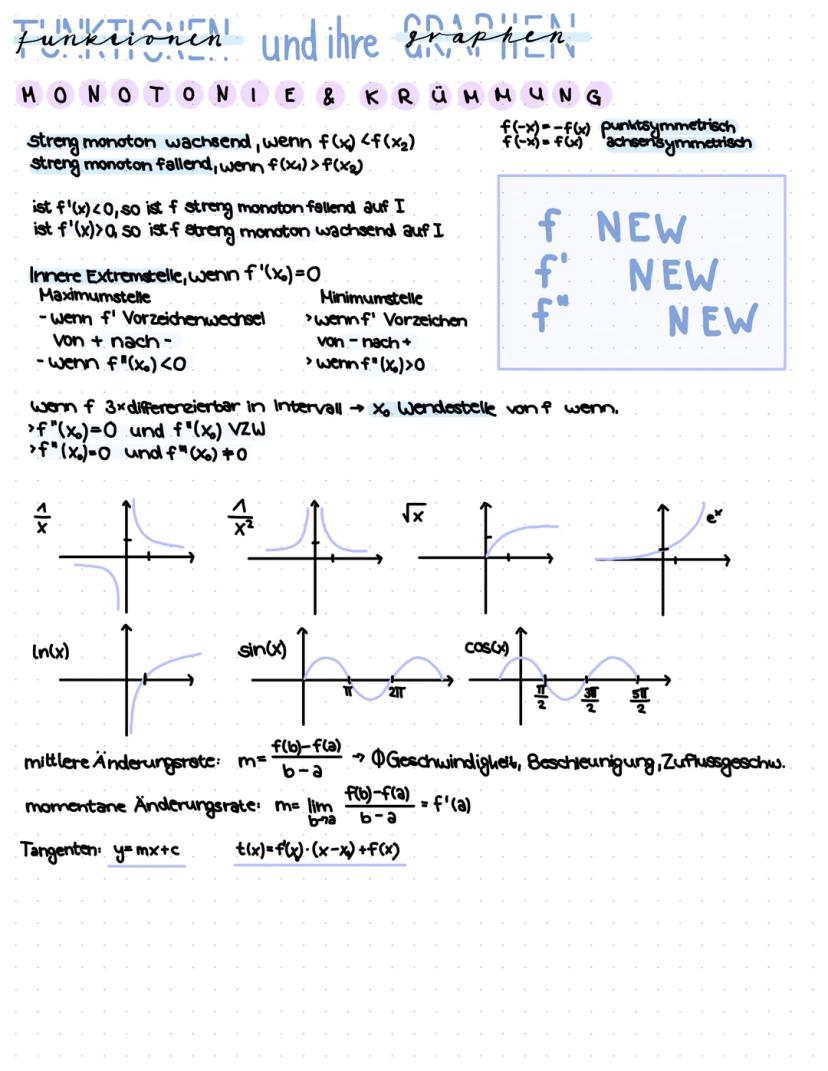 Funktionen und ihre graphen
MONOTONIE & KRÜMMUNG
f(-x) = -f(x) punktsymmetrisch
f(-x) = f(x) achsensymmetrisch
streng monoton wachsend, wenn f(x₁) < f(x₂)
streng monoton fallend, wenn f(x₁) > f(x₂)
ist f'(x)<0, so ist f streng monoton fallend auf I
ist f'(x)>0, so ist f streng monoton wachsend auf I
f NEW
f' NEW
f" NEW
Innere Extremstelle, wenn f'(x₀)=0
Maximumstelle
- wenn f' Vorzeichenwechsel
von + nach -
- wenn f"(x₀) <0
Minimumstelle
> wenn f' Vorzeichen
von - nach +
> wenn f"(x₀)>0
wenn f 3x differenzierbar in Intervall → x₀ Wendestelle von f wenn.
> f"(x₀)=0 und f"(x₀) VZW
> f"(x₀)=0 und f'''(x₀) ≠ 0
1/x
1/x²
√x
eˣ
ln(x)
sin(x)
π 2π
cos(x)
π/2 3π/2 5π/2
mittlere Änderungsrate: m= f(b)-f(a) / b-a → Ø Geschwindigkeit, Bescheunigung, Zuflussgeschw.
momentane Änderungsrate: m= lim b→a f(b)-f(a) / b-a = f'(a)
Tangenten: y=mx+c t(x)=f'(x₀)·(x-x₀)+f(x)